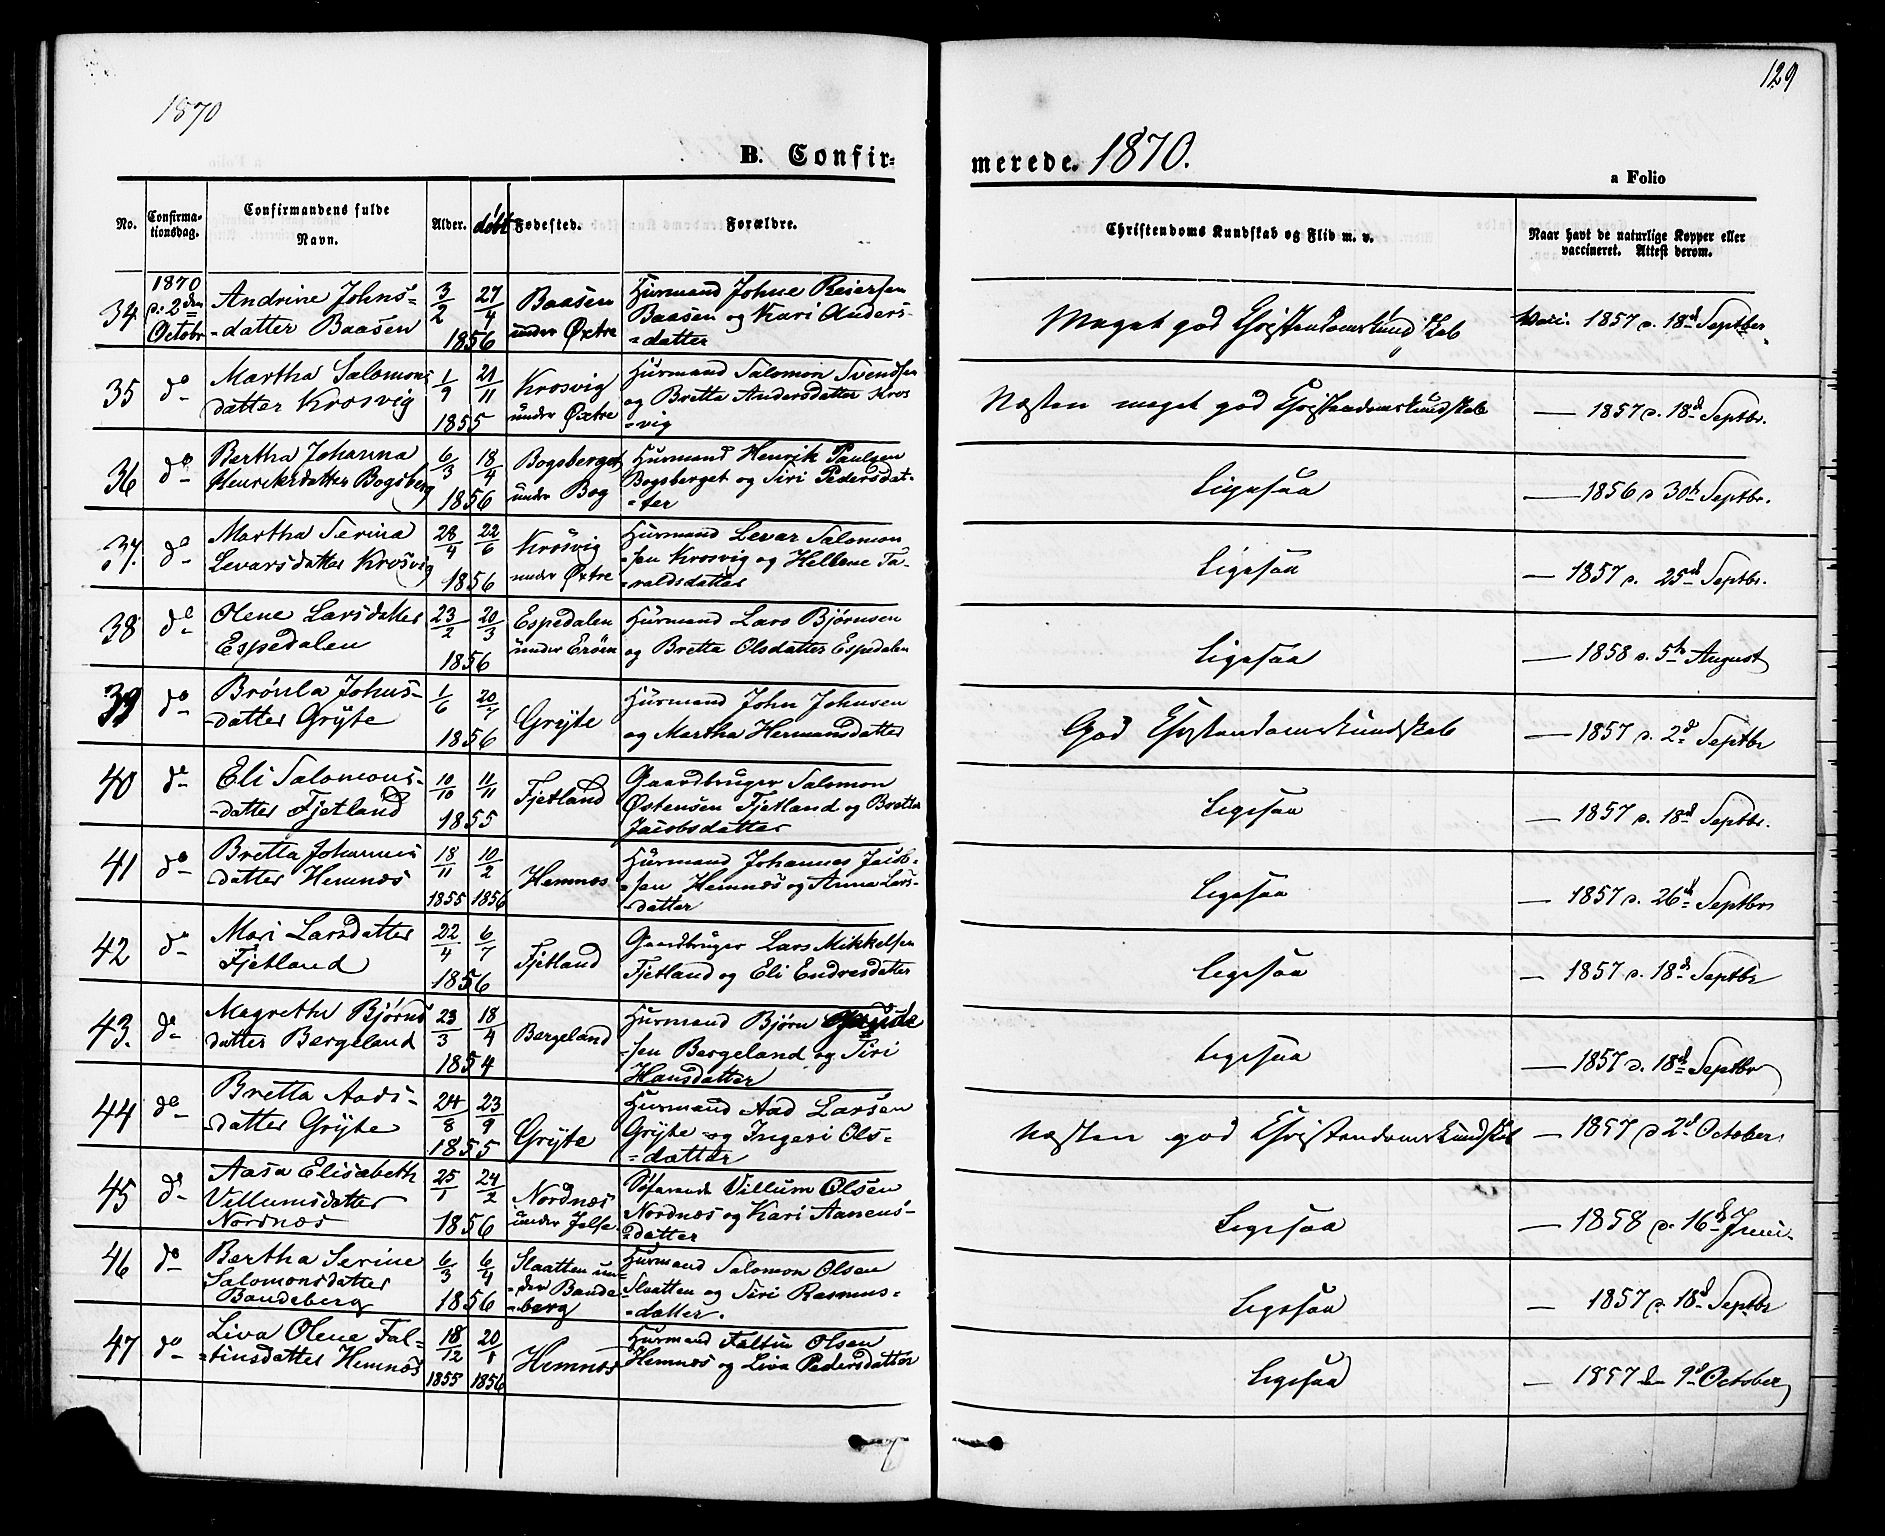 129
1870
B. Confir-
merede. 1870.
a Folio
No.
Confirma-
tionsdag.
Confirmandens fulde
Navn.
Alder.
døbt
Fødested.
Forældre.
Christendoms Kundskab og Flid m. v.
Naar havt de naturlige Kopper eller
vaccineret. Attest derom.
34
1870
d. 2den
Octobr
Andrine Johns-
-datter Baasen
3/2 27/4
1856
Baasen
under Øxtre
Huusmand Johne Reiersen
Baasen og Kari Anders-
-datter
Meget god Christendomskundskab
Vacc. 1857 d. 18d Septber
35 do
Martha Salomons
datter Krosvig
1/9 21/11
1855
Krosvig
under Øxtre
Huusmand Salomon Svendsen
og Bretta Andersdatter Kros
-vig
Næsten meget god Christendomskundskab
— 1857 d. 18d Septbr.
36 do
Bertha Johanna
Henriksdatter Bogsberg
6/3 18/4
1856
Bogsberget
under Bog
Huusmand Henrik Paulsen
Bogsberget og Siri Pedersdat-
-ter
Ligesaa
— 1856 d 30te Septbr.
37. do
Martha Serina
Levarsdatter Krosvig
28/4 22/6
1856
Krosvig
under Øxtre
Huusmand Levar Salomon
-sen Krosvig og Hellene Ta-
-raldsdatter
Ligesaa
— 1857 d. 25d Septbr.
38 do
Olene Larsdatter
Espedalen
23/2 20/3
1856
Espedalen
under Erøen
Huusmand Lars Bjørnsen
og Bretta Olsdatter Espedalen
Ligesaa
— 1858 d. 5te August
39 do
Brønla Johns-
-datter Grÿte
1/6 20/7
1856
Grÿte
Huusmand John Johnsen
og Martha Hermansdatter
God Christendomskundskab
— 1857 d. 2d Septbr
40 do
Eli Salomons-
-datter Fjetland
10/10 11/11
1855
Fjetland
Gaardbruger Salomon
Østensen Fjetland og Bretta
Jacobsdatter
Ligesaa
— 1857 d. 18d Septbr.
41 do
Bretta Johannes
datter Hemnæs
18/11 10/2
1855 1856
Hemnæs
Huusmand Johannes Jacob-
-sen Hemnæs og Anna Lars-
-datter
Ligesaa
— 1857 d. 26d Septbr
42 do
Mari Larsdatter
Fjetland
22/4 6/7
1856
Fjetland
Gaardbruger Lars Mikkelsen
Fjetland og Eli Endresdatter
Ligesaa
— 1857 d. 18d Septbr
43. do
Magrethe Bjørns
datter Bergeland
23/3 18/4
1854
Bergeland
Huusmand Bjørn
-sen Bergeland og Siri
Hansdatter
Ligesaa
— 1857 d. 18d Septbr
44 do
Bretta Aads-
datter Grÿte
24/8 23/9
1855
Grÿte
Huusmand Aad Larsen
Grÿte og Ingeri Ols-
-datter
Næsten god Christendomskundskab
— 1857 d 2d October
45 do
Aasa Elisabeth
Villumsdatter
Nordnæs
25/1 24/2
1856
Nordnæs
under Jelse
Søfarende Villum Olsen
Nordnæs og Kari Aanens-
-datter
Ligesaa
— 1858 d. 16d Juni
46 do
Bertha Serine
Salomonsdatter
Bandeberg
6/3 6/4
1856
Slaatten un-
-der Bande-
-berg
Huusmand Salomon Olsen
Slaatten og Siri Rasmus-
-datter.
Ligesaa
— 1857 d. 18d Septbr
47 do
Liva Olene Fal-
-tinsdatter Hemnæs
18/12 20/1
1855 1856
Hemnæs
Huusmand Faltin Olsen
Hemnæs og Liva Pedersdatter
Ligesaa
— 1857 den 9d October